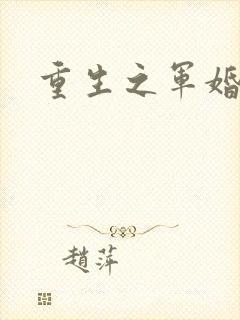 重生之军婚
趙萍